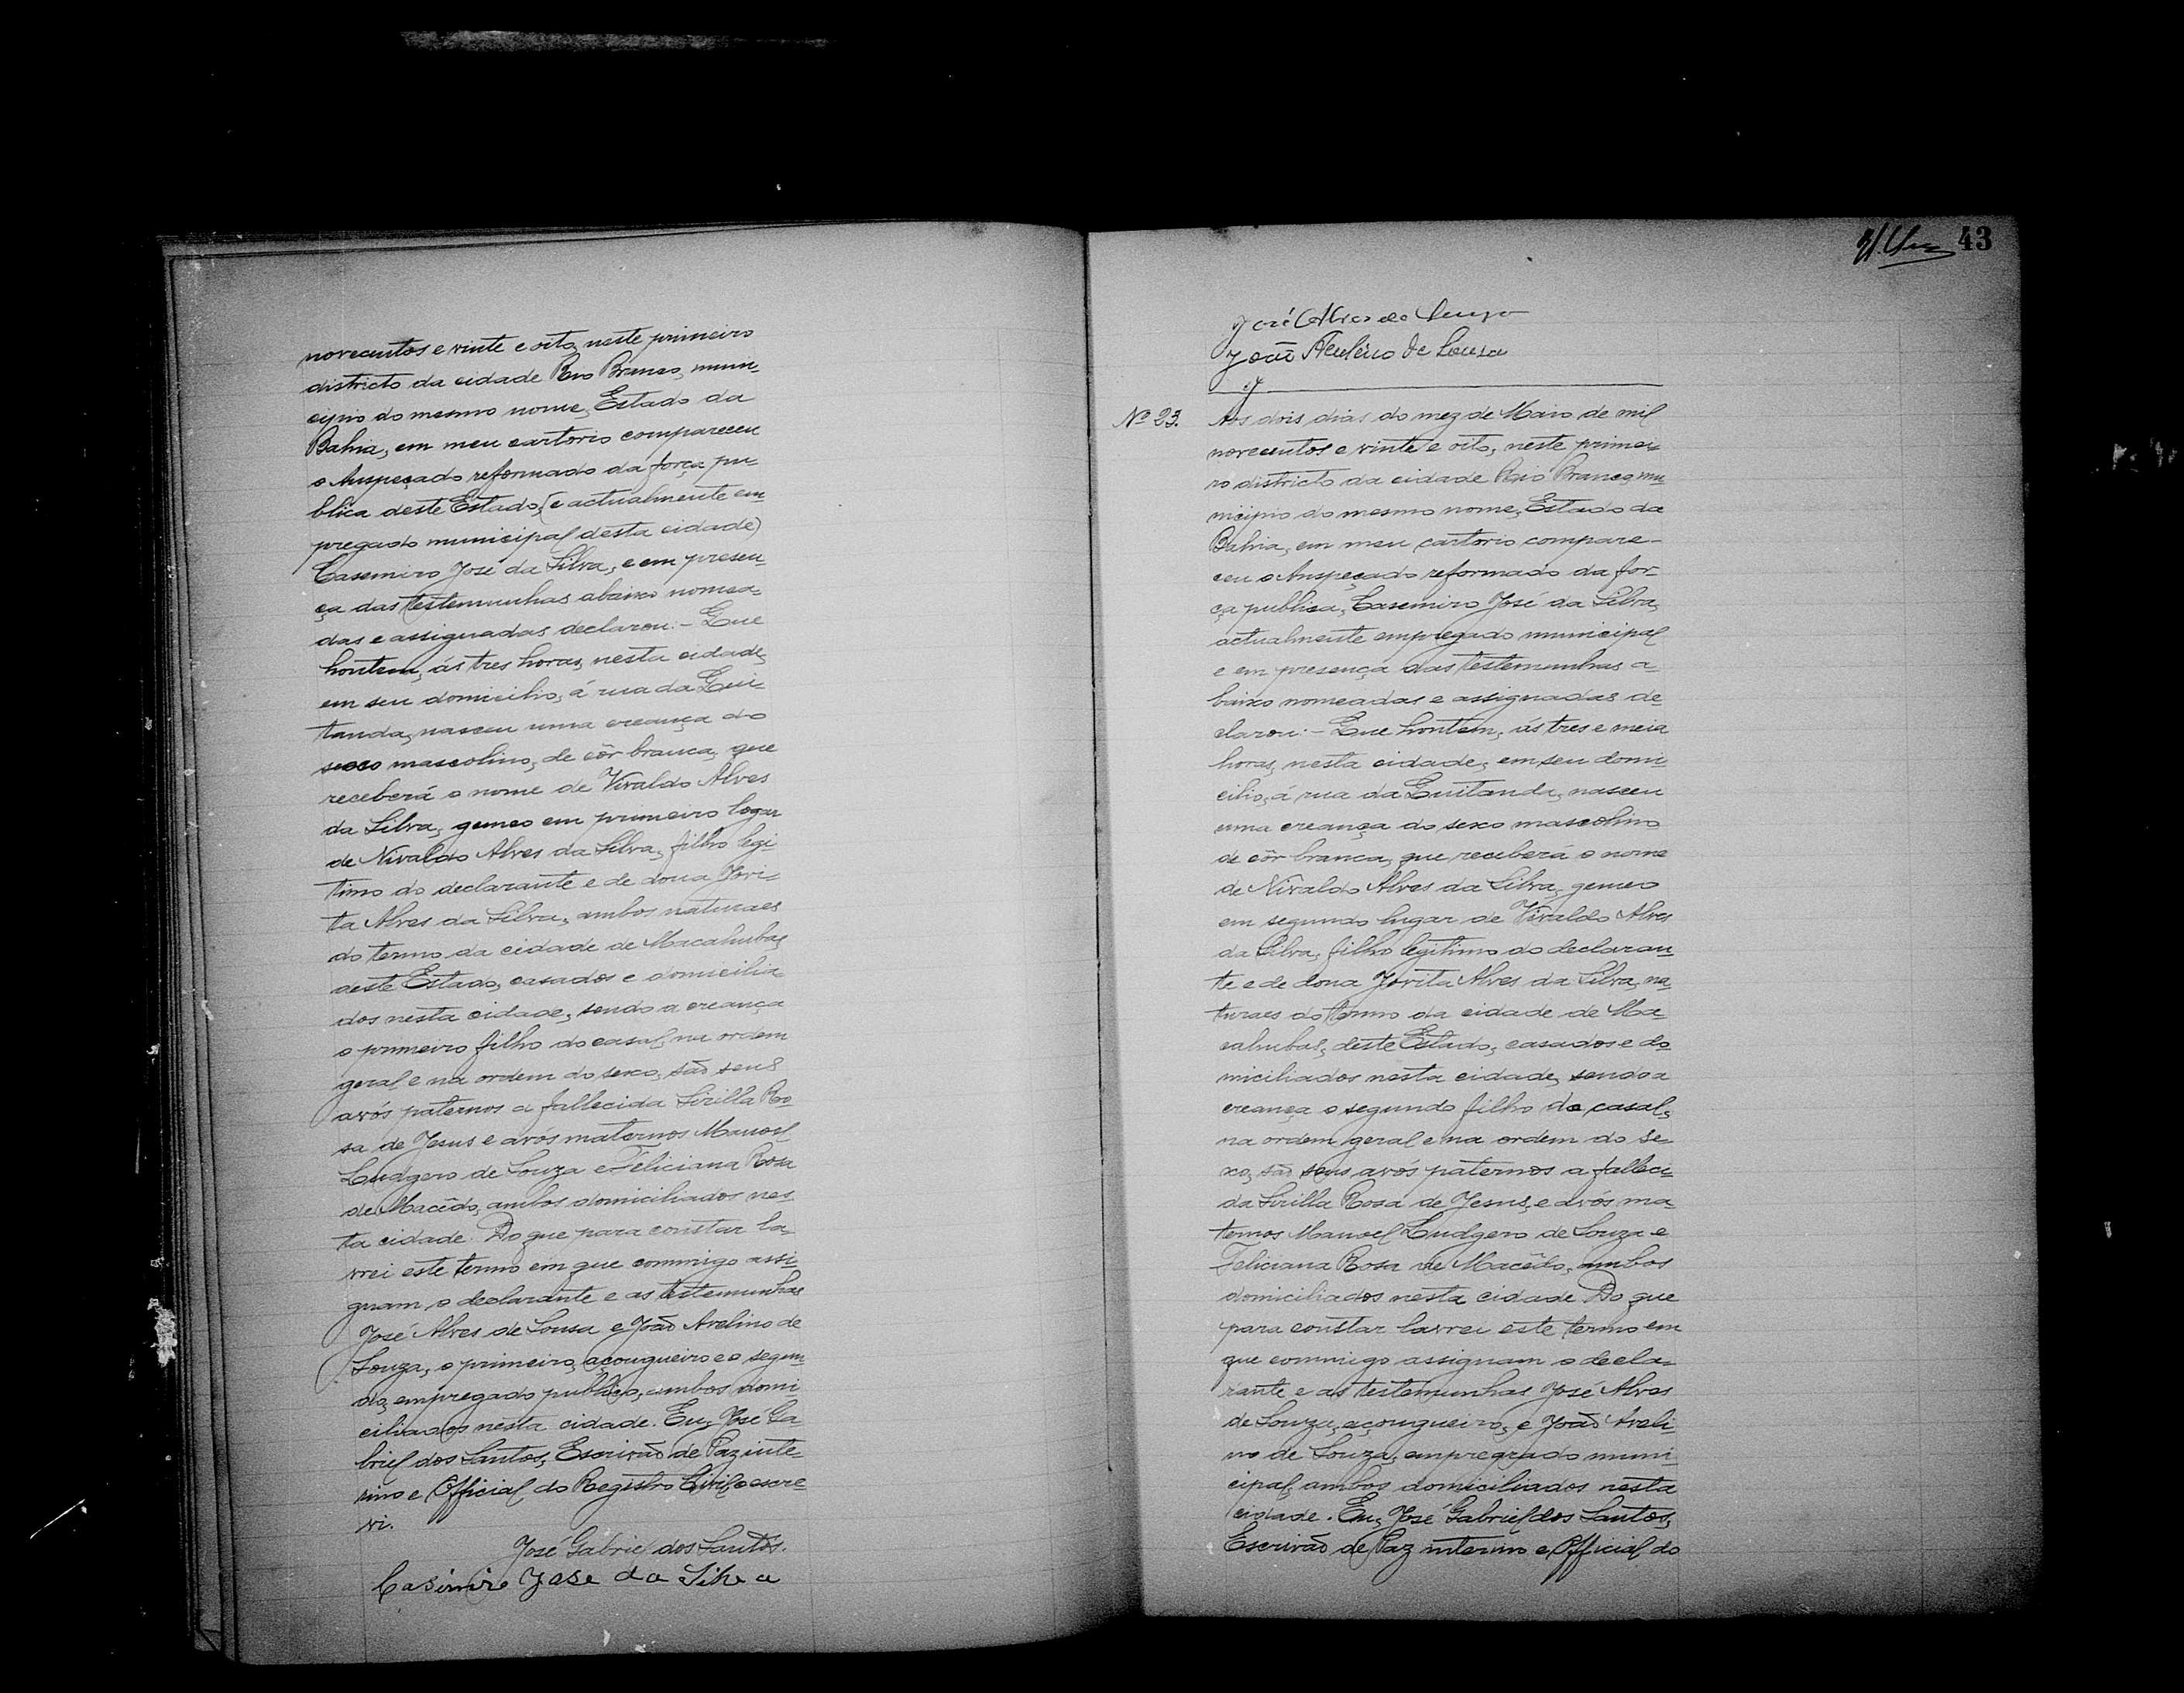 novecentos e vinte e oito, neste primeiro
districto da cidade Rio Branco, muni-
cipio do mesmo nome, Estado da
Bahia, em meu cartorio compareceu
o Anspeçado reformado da força pu-
blica deste Estado, (e actualmente em-
pregado municipal desta cidade)
Casemiro José da Silva, e em presen-
ça das testemunhas abaixo nomea-
das e assignadas declarou:- Que
hontem, ás tres horas, nesta cidade,
em seu domicilio, á rua da Qui-
tanda, nasceu uma creança do
sexo mascolino, de côr branca, que
receberá o nome de Vivaldo Alves
da Silva, gemeo em primeiro logar
de Nivaldo Alves da Silva, filho legi-
timo do declarante e de dona Jovi-
ta Alves da Silva, ambos naturaes
do termo da cidade de Macahubas
deste Estado, casados e domicilia-
dos nesta cidade, sendo a creança
o primeiro filho do casal, na ordem
geral e na ordem do sexo, são seus
avós paternos a fallecida Sirilla Ro-
sa de Jesus e avós maternos Manoel
Ludgero de Souza e Feliciana Rosa
de Macêdo, ambos domiciliados nes-
ta cidade. Do que para constar la-
vrei este termo em que commigo assi-
gnam o declarante e as testemunhas
José Alves de Sousa e João Avelino de
Souza, o primeiro, açougueiro e o segun-
do, empregado publico, ambos domi-
ciliados nesta cidade. Eu, José Ga-
briel dos Santos, Escrivão de Paz inte-
rino e Official do Registro Civil, o escre-
vi.
José Gabriel dos Santos.
Casimiro Jose da Silva
43
José Alves de Souza
João Avelino de Souza
Nº 23.
Aos dois dias do mez de Maio de mil
novecentos e vinte e oito, neste primei-
ro districto da cidade Rio Branco, mu-
nicipio do mesmo nome, Estado da
Bahia, em meu cartorio compare-
ceu o Anspeçado reformado da for-
ça publica, Casemiro José da Silva,
actualmente empregado municipal
e em presença das testemunhas a-
baixo nomeadas e assignadas de-
clarou:- Que hontem, ás tres e meia
horas, nesta cidade, em seu domi-
cilio, á rua da Quitanda, nasceu
uma creança do sexo mascolino
de côr branca, que receberá o nome
de Nivaldo Alves da Silva, gemeo
em segundo lugar de Vivaldo Alves
da Silva, filho legitimo do declaran-
te e de dona Jovita Alves da Silva, na-
turaes do termo da cidade de Ma-
cahubas, deste Estado, casados e do-
miciliados nesta cidade, sendo a
creança o segundo filho do casal,
na ordem geral e na ordem do se-
xo, são seus avós paternos a falleci-
da Sirilla Rosa de Jesus, e avós ma-
ternos Manoel Ludgero de Souza e
Feliciana Rosa de Macêdo, ambos
domiciliados nesta cidade. Do que
para constar lavrei este termo em
que commigo assignam o decla-
rante e as testemunhas José Alves
de Souza, açougueiro, e João Aveli-
no de Souza, empregado muni-
cipal, ambos domiciliados nesta
cidade. Eu, José Gabriel dos Santos,
Escrivão de Paz interino e Official do